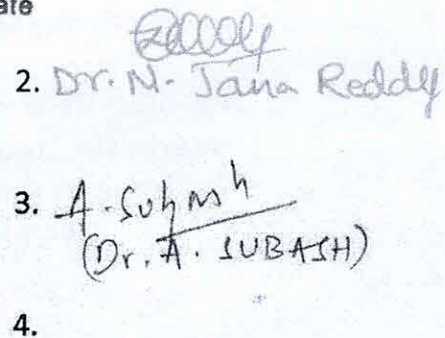 ate
2. Dr. N. Jana Reddy
3. A. Subash
(Dr. A. SUBASH)
4.